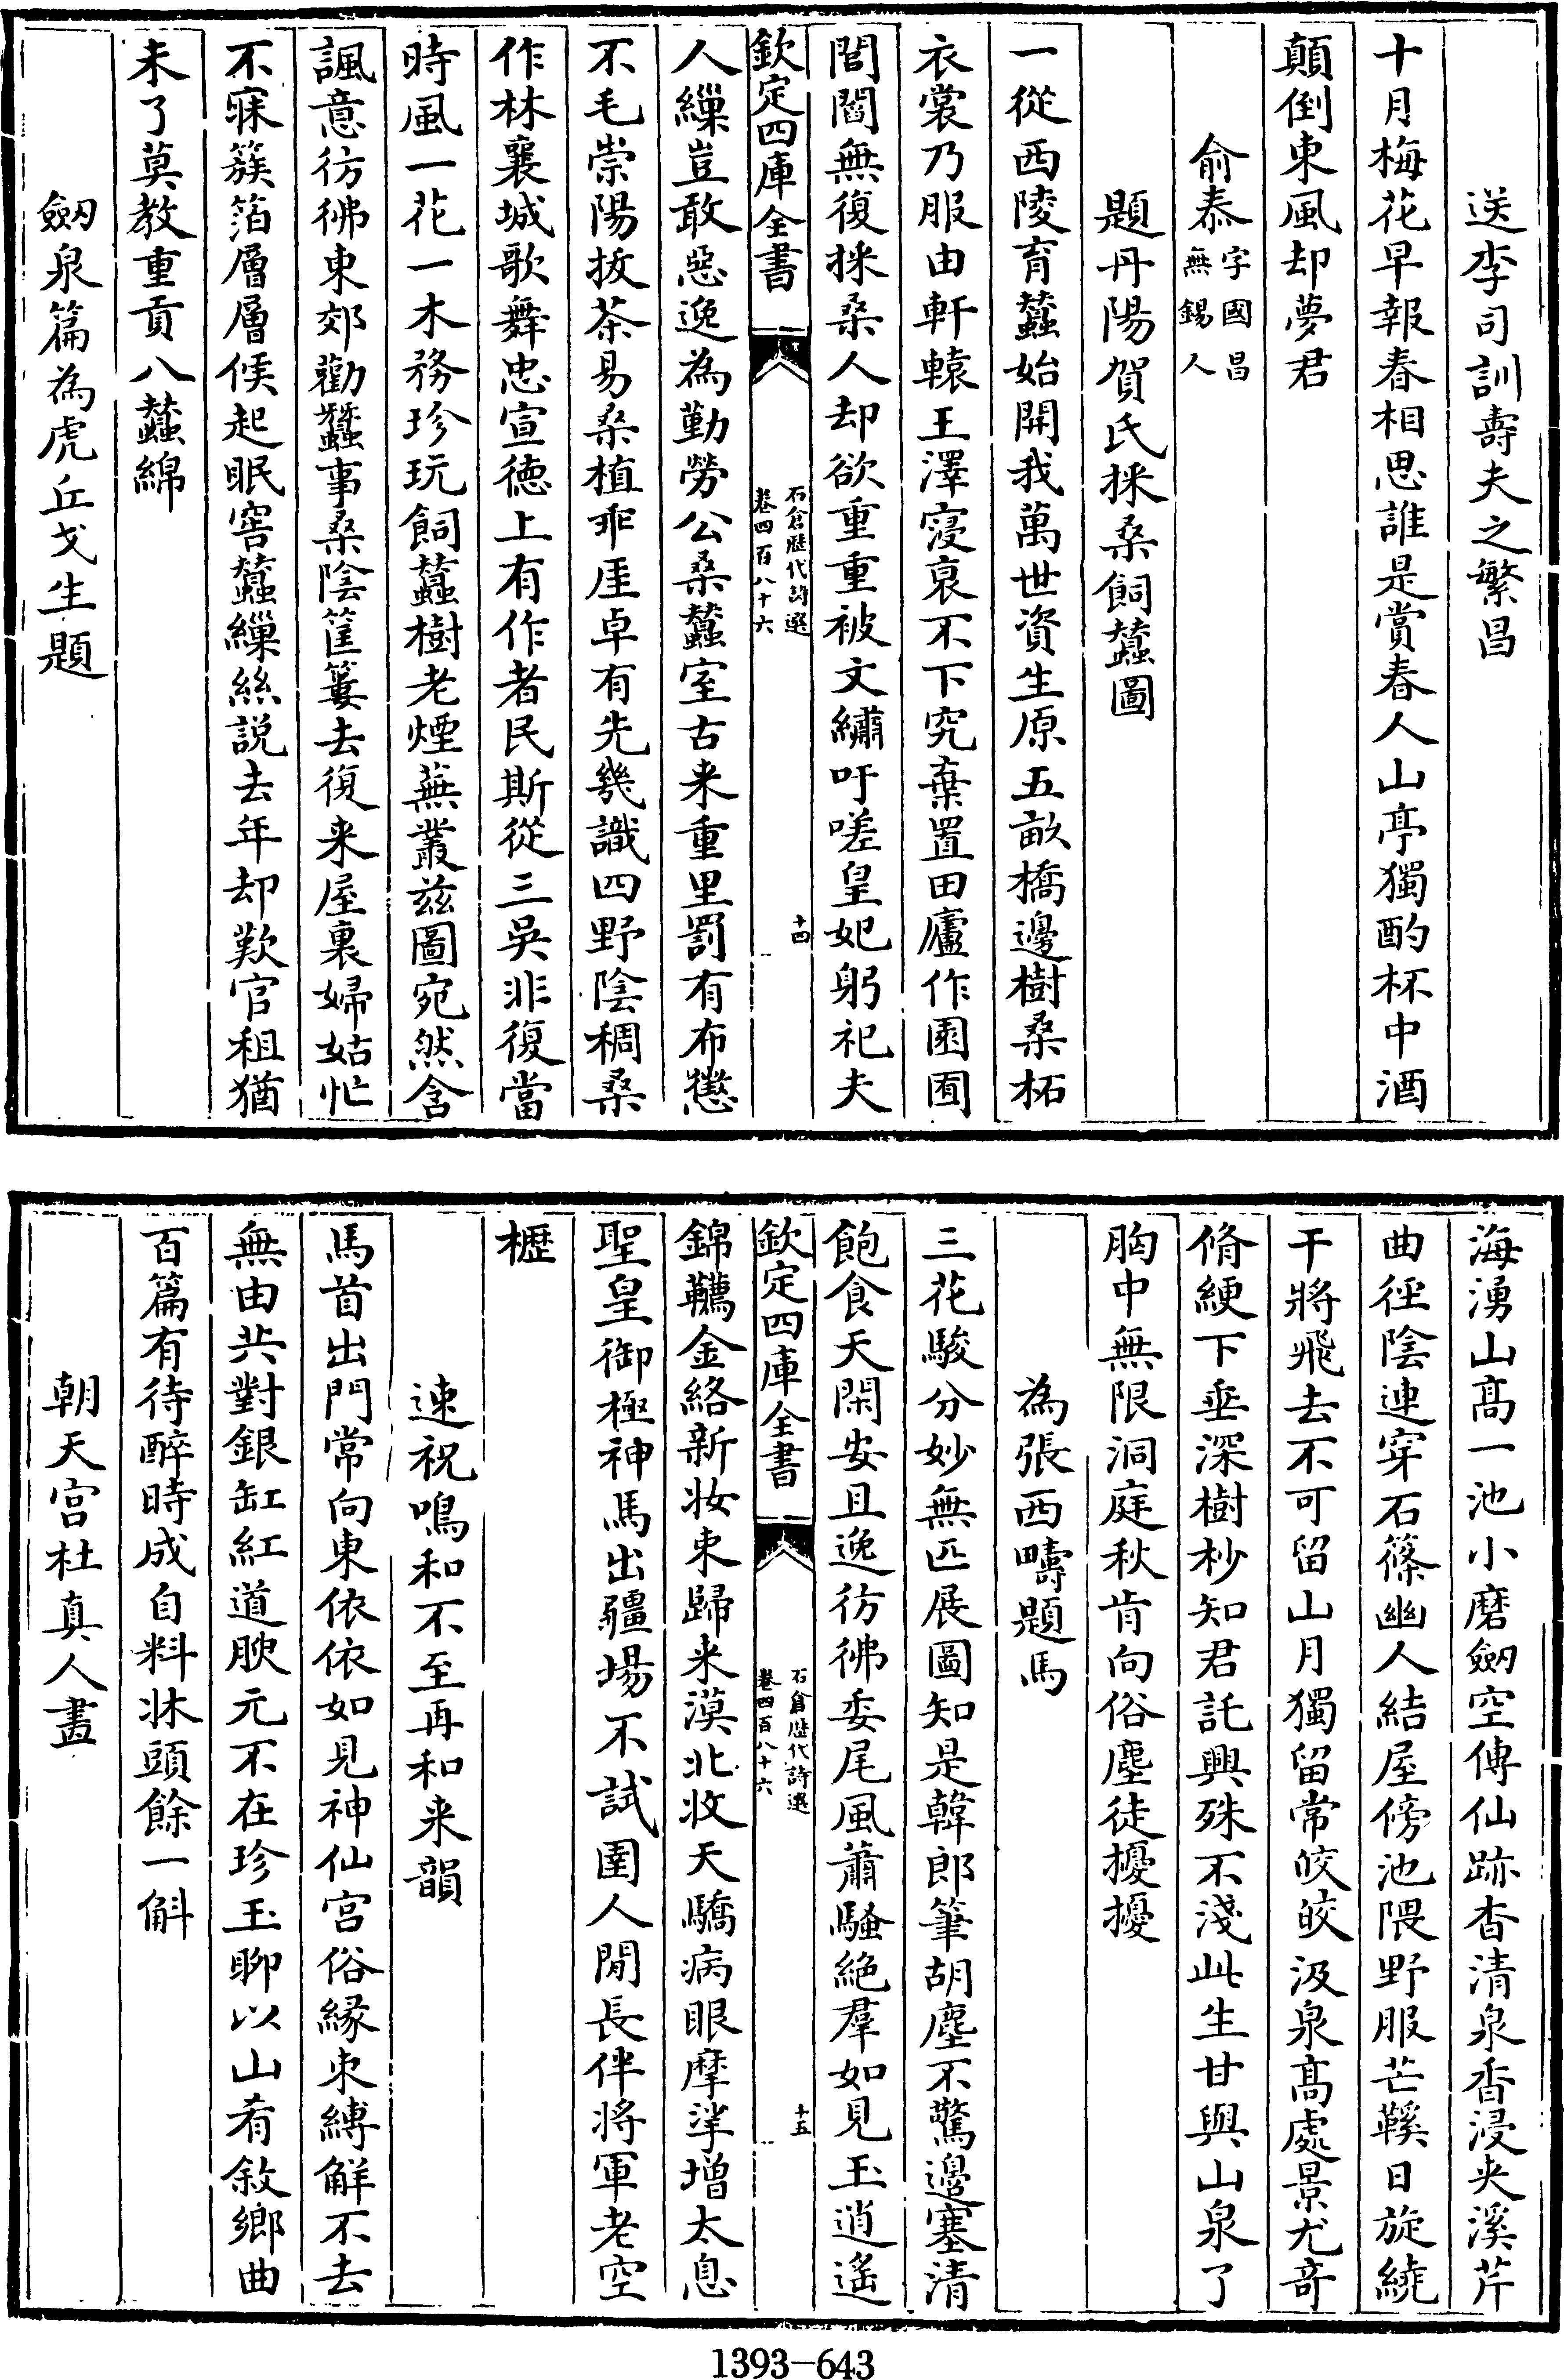 送李司訓壽夫之繁昌
十月梅花早報春相思誰是賞春人山亭獨酌杯中酒
顛倒東風却夢君
俞泰字國昌無錫人
題丹陽賀氏採桑飼蠶圖
一從西陵育蠶始開我萬世資生原五畝橋邊樹桑柘
衣裳乃服由軒轅王澤寖衰不下究棄置田廬作園囿
閭閻無復採桑人却欲重重被文繡吁嗟皇妃躬祀夫
欽定四庫全書
石倉歷代詩選
卷四百八十六
十四
人繅豈敢惡逸為勤勞公桑蠶室古来重里罰有布懲
不毛崇陽拔茶易桑植乖厓卓有先幾識四野陰稠桑
作林襄城歌舞忠宣徳上有作者民斯從三吳非復當
時風一花一木務珍玩飼蠶樹老煙蕪叢兹圖宛然含
諷意彷彿東郊勸蠶事桑陰筐簍去復来屋裏婦姑忙
不寐簇箔層層候起眠窖蠶繅絲説去年却歎官租猶
未了莫教重貢八蠶綿
劔泉篇為虎丘戈生題
海湧山髙一池小磨劔空傳仙跡杳清泉香浸夾溪芹
曲徑陰連穿石篠幽人結屋傍池隈野服芒鞵日旋繞
干將飛去不可留山月獨留常皎皎汲泉髙處景尤竒
脩綆下垂深樹杪知君託興殊不淺此生甘與山泉了
胸中無限洞庭秋肯向俗塵徒擾擾
為張西疇題馬
三花駿分妙無匹展圖知是韓郎筆胡塵不驚邊塞清
飽食天閑安且逸彷彿委尾風蕭騷絶羣如見玉逍遙
欽定四庫全書
石倉歷代詩選
卷四百八十六
十五
錦韉金絡新妝束歸来漠北收天驕病眼摩挲增太息
聖皇御極神馬出疆場不試圉人閒長伴将軍老空
櫪
速祝鳴和不至再和来韻
馬首出門常向東依依如見神仙宫俗縁束縛觧不去
無由共對銀缸紅道腴元不在珍玉聊以山肴敘鄉曲
百篇有待醉時成自料牀頭餘一斛
朝天宫杜真人畫
1393-643